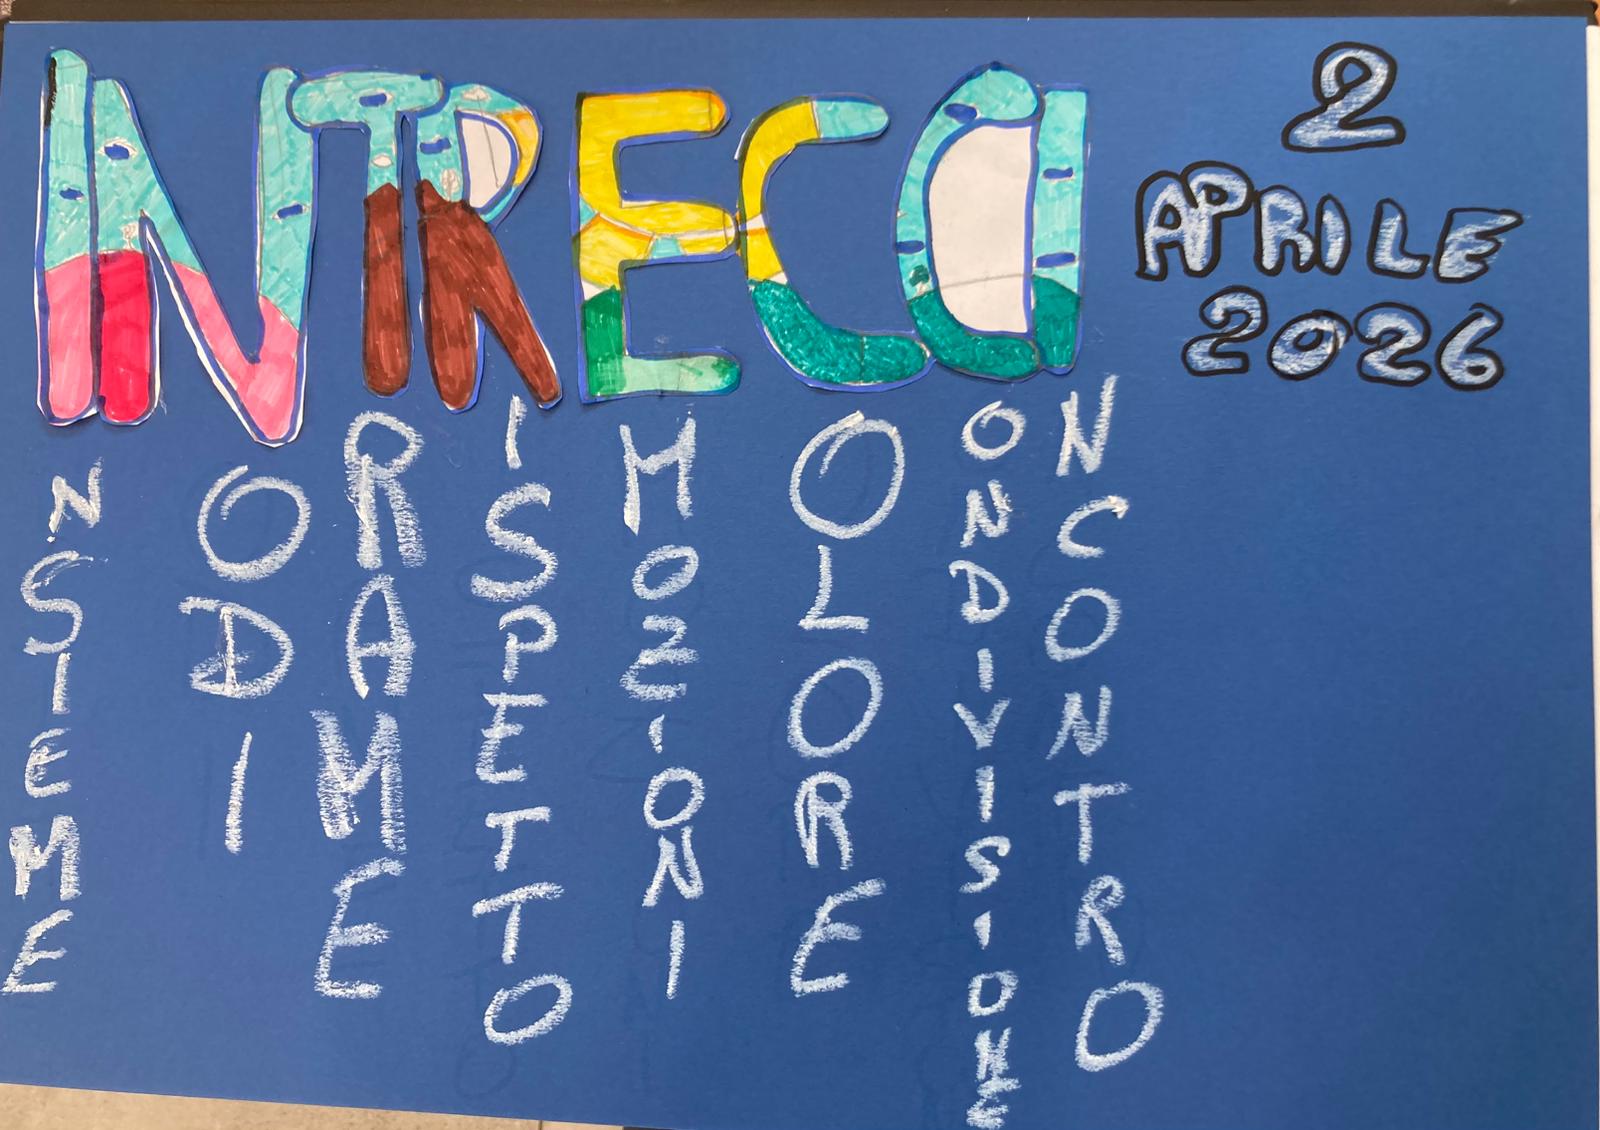 INTRECCI
2
APRILE
2026
NSIEME
ODI
RAME
ISPETTO
MOZIONI
OLORE
ONDIVISIONE
NCONTRO